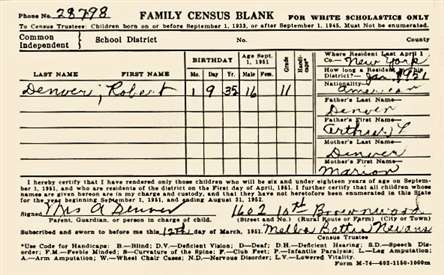 Phone No. 28798 FAMILY CENSUS BLANK FOR WHITE SCHOLASTICS ONLY
To Census Trustees: Children born on or before September 1, 1933, or after September 1, 1945, Must Not be enumerated.
Common
Independent } School District No. County
LAST NAME FIRST NAME
BIRTHDAY
Mo. Day Yr.
Age Sept. 1, 1951
Male Fem.
Grade
Handicaps*
Where Resident Last April 1
Co.— New York
How long a Resident this District?— Jan 1951
Nationality— American
Denver, Robert 1 9 35 16 11
Father's Last Name—
Denver
Father's First Name—
Arthur
Mother's Last Name—
Denver
Mother's First Name—
Marion
I hereby certify that I have rendered only those children who will be six and under eighteen years of age on September 1, 1951, and who are residents of the district on the First day of April, 1951. I further certify that all children whose names are given hereon are in my charge and custody, and that they have not heretofore been enumerated in this State for the year beginning September 1, 1951, and ending August 31, 1952.
Signed Mrs A Denver 1602 10th Brownwood
Parent, Guardian, or person in charge of child. (Street and No.) (Rural Route or Farm) (City or Town)
Subscribed and sworn to before me this 15th day of March, 1951. Melba
Census Trustee
*Use Code for Handicaps: B.—Blind; D.V.—Deficient Vision; D.—Deaf; D.H.—Deficient Hearing; S.D.—Speech Disorder; F.M.—Feeble Minded; S.—Curvature of the Spine; F.—Club Feet; P.—Infantile Paralysis; L.—Leg Amputation; A.—Arm Amputation; W.—Wheel Chair Cases; N.D.—Nervous Disorder; C.—Cardiac; G.—Glandular.
Form M-74—602-1150-1000m